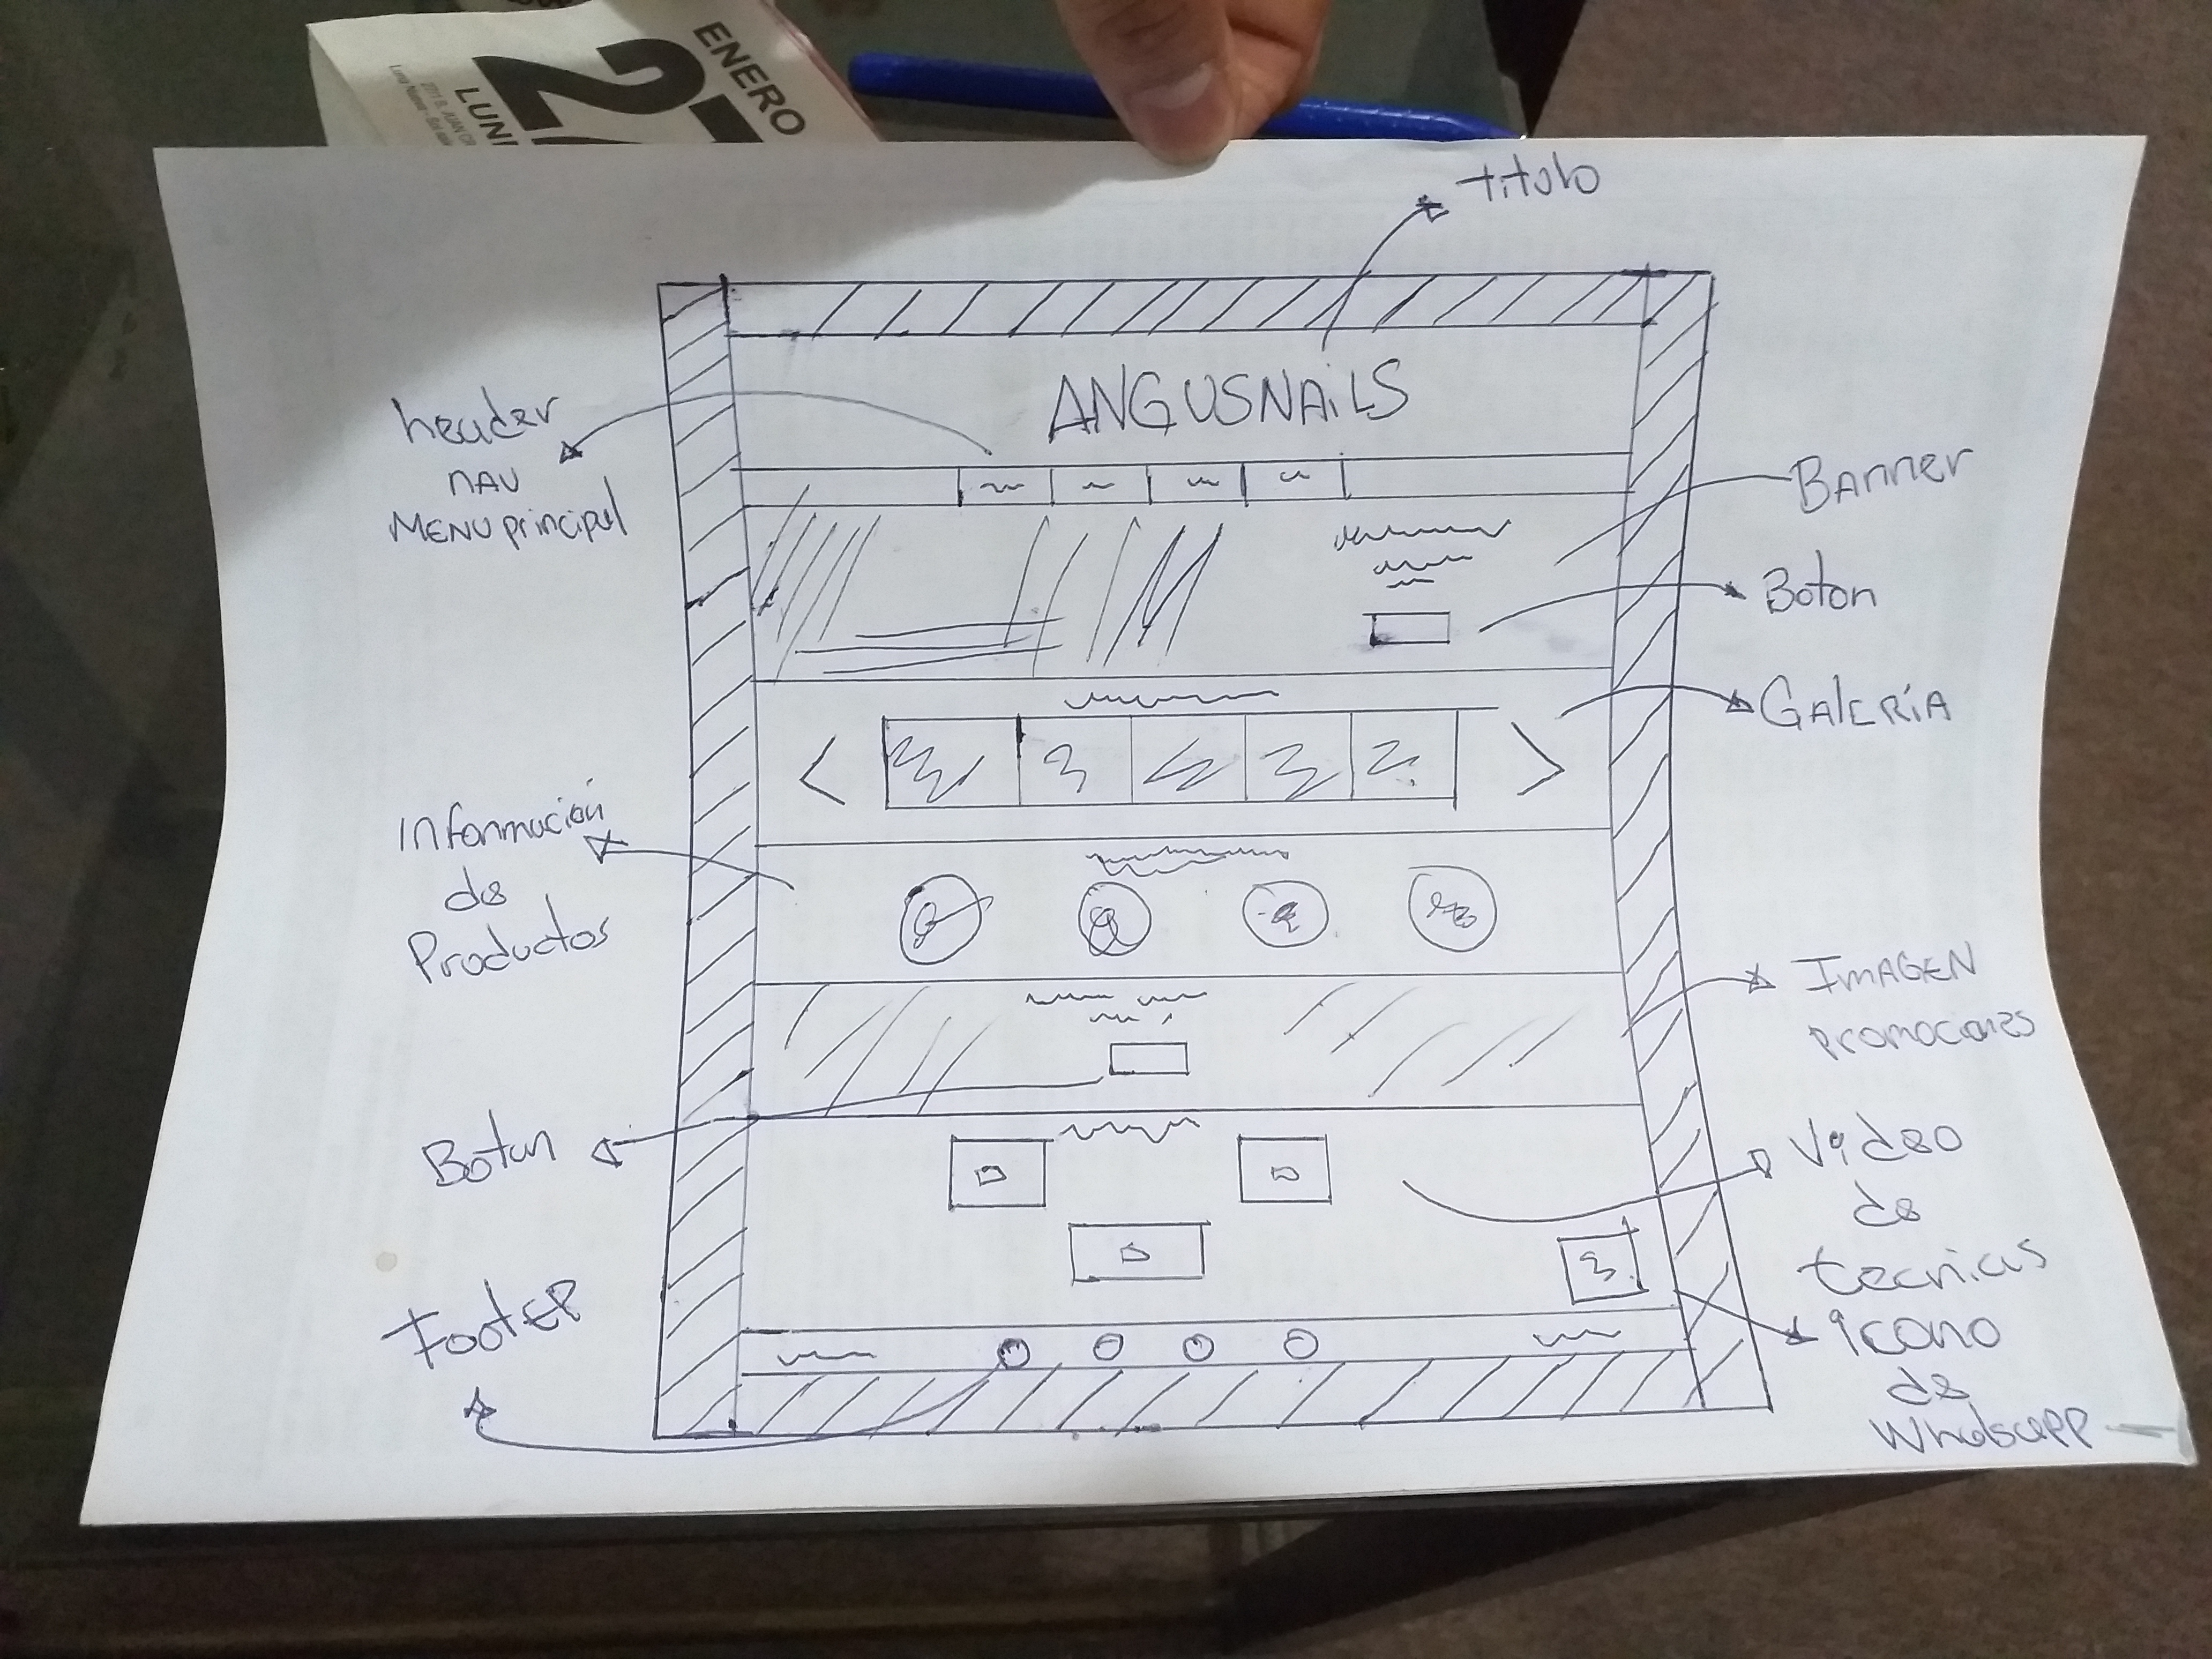 ENERO
27
LUNE
titulo
ANGUSNAILS
header
NAV
MENU principal
BANNER
Boton
GALERÍA
Información
de
Productos
IMAGEN
promociones
Boton
Video
de
tecnicas
FootER
icono
de
Whatsapp